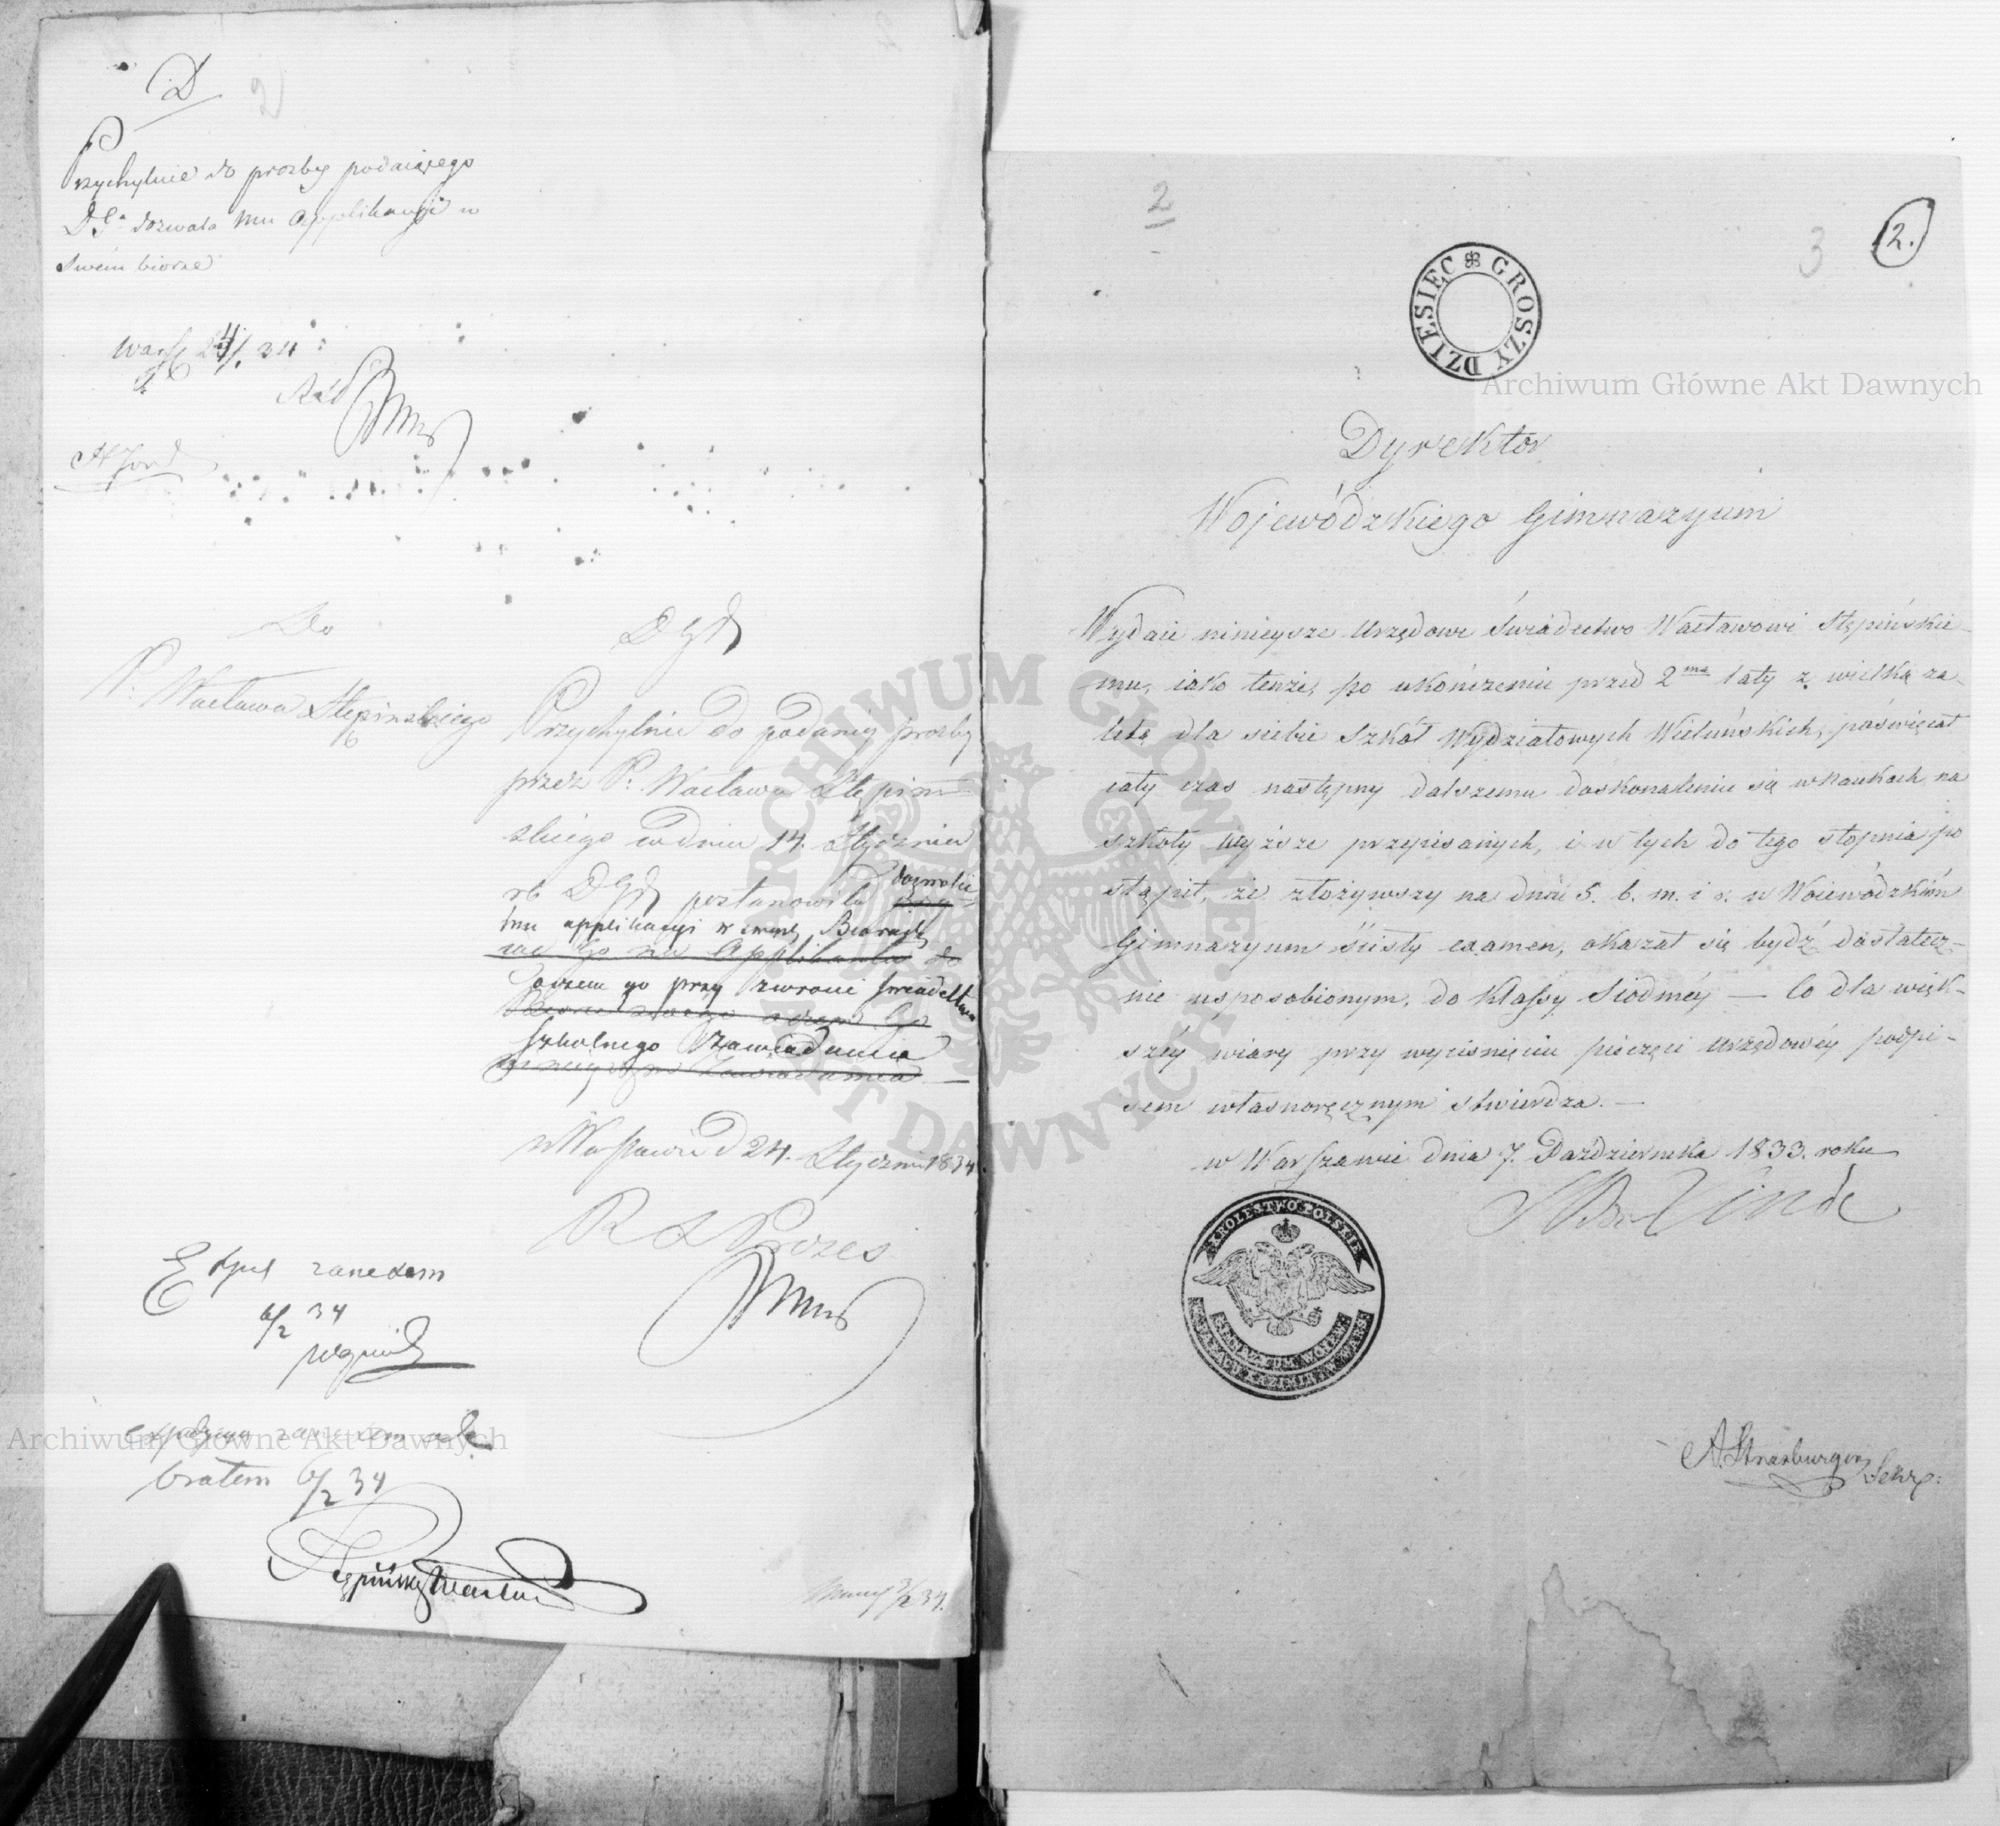 D
2
Przychylnie do prozby podaiącego
D G. dozwala mu Applikacyi w
Swém biorze
Warsz 24/1 34
Do
P. Wacława Stępinskiego
Przychylnie do podaney prozby
przez P. Wacława Stępin
skiego w dniu 14. Stycznia
rb DGD postanowiła dozwolić
mu applikacyi w swem Biorze,
na Applikanta do
o czem go przy zwrocie świadectwa
szkolnego Zawiadamia
Zawiadamia —
w Warszawie D 24. Stycznia 1834
R S Prezes
Exped zaraz em
6/2 34
bratem 6/2 34
Stępiński Wacław
3/2 34.
2
3
2.
DZIESIĘĆ GROSZY
Dyrektor
Wojewódzkiego Gimnazyum
Wydaie ninieysze Urzędowe Świadectwo Wacławowi Stępińskie-
mu, iako tenże, po ukończeniu przed 2ma laty z wielką za-
letą dla siebie Szkół Wydziałowych Wieluńskich, poświęcał
cały czas następny dalszemu doskonaleniu się w Naukach na
szkoły wyższe przepisanych, i w tych do tego stopnia po
stąpił, że złożywszy na dniu 5. b. m. i r. w Woiewódzkim
Gimnazyum ścisły examen, okazał się bydź dostatecz-
nie usposobionym, do Klassy Siódméy — Co dla więk-
széy wiary przy wyciśnięciu pieczęci urzędowéy podpi-
sem własnoręcznym stwierdza. —
w Warszawie dnia 7. Października 1833. roku
Linde
KRÓLESTWO POLSKIE
GIMNAZYUM WOIEW.
A. Strasburger Sekr:
Archiwum Główne Akt Dawnych
Archiwum Główne Akt Dawnych
ARCHIWUM GŁÓWNE AKT DAWNYCH